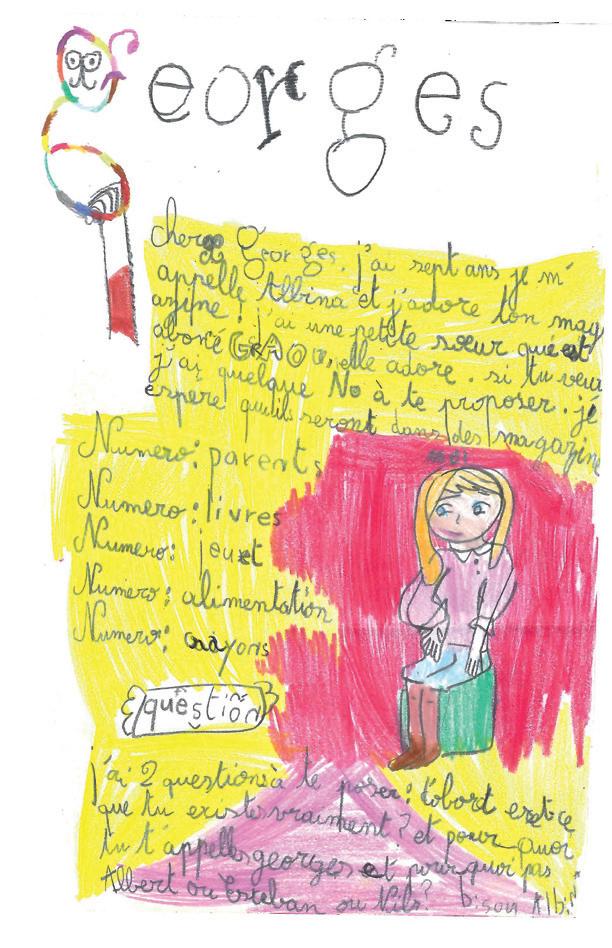 Georges
cher Georges. j'ai sept ans je m'
appelle Albina et j'adore ton mag
azine! j'ai une petite sœur qué est
aboné GRAOU, elle adore. si tu veux
j'ai quelque No à te proposer. jé
espère qu'ils seront dans des magazine
Numero: parents
Numero: livres
Numero: jouet
Numero: alimentation
Numero: crayons
moi
question
j'ai 2 questions à te poser: t'abort esstce
que tu existes vraiment? et pour quoi
tu t'appelles georges et pourquoi pas
Albert ou Esteban ou Nils? bisou Albi